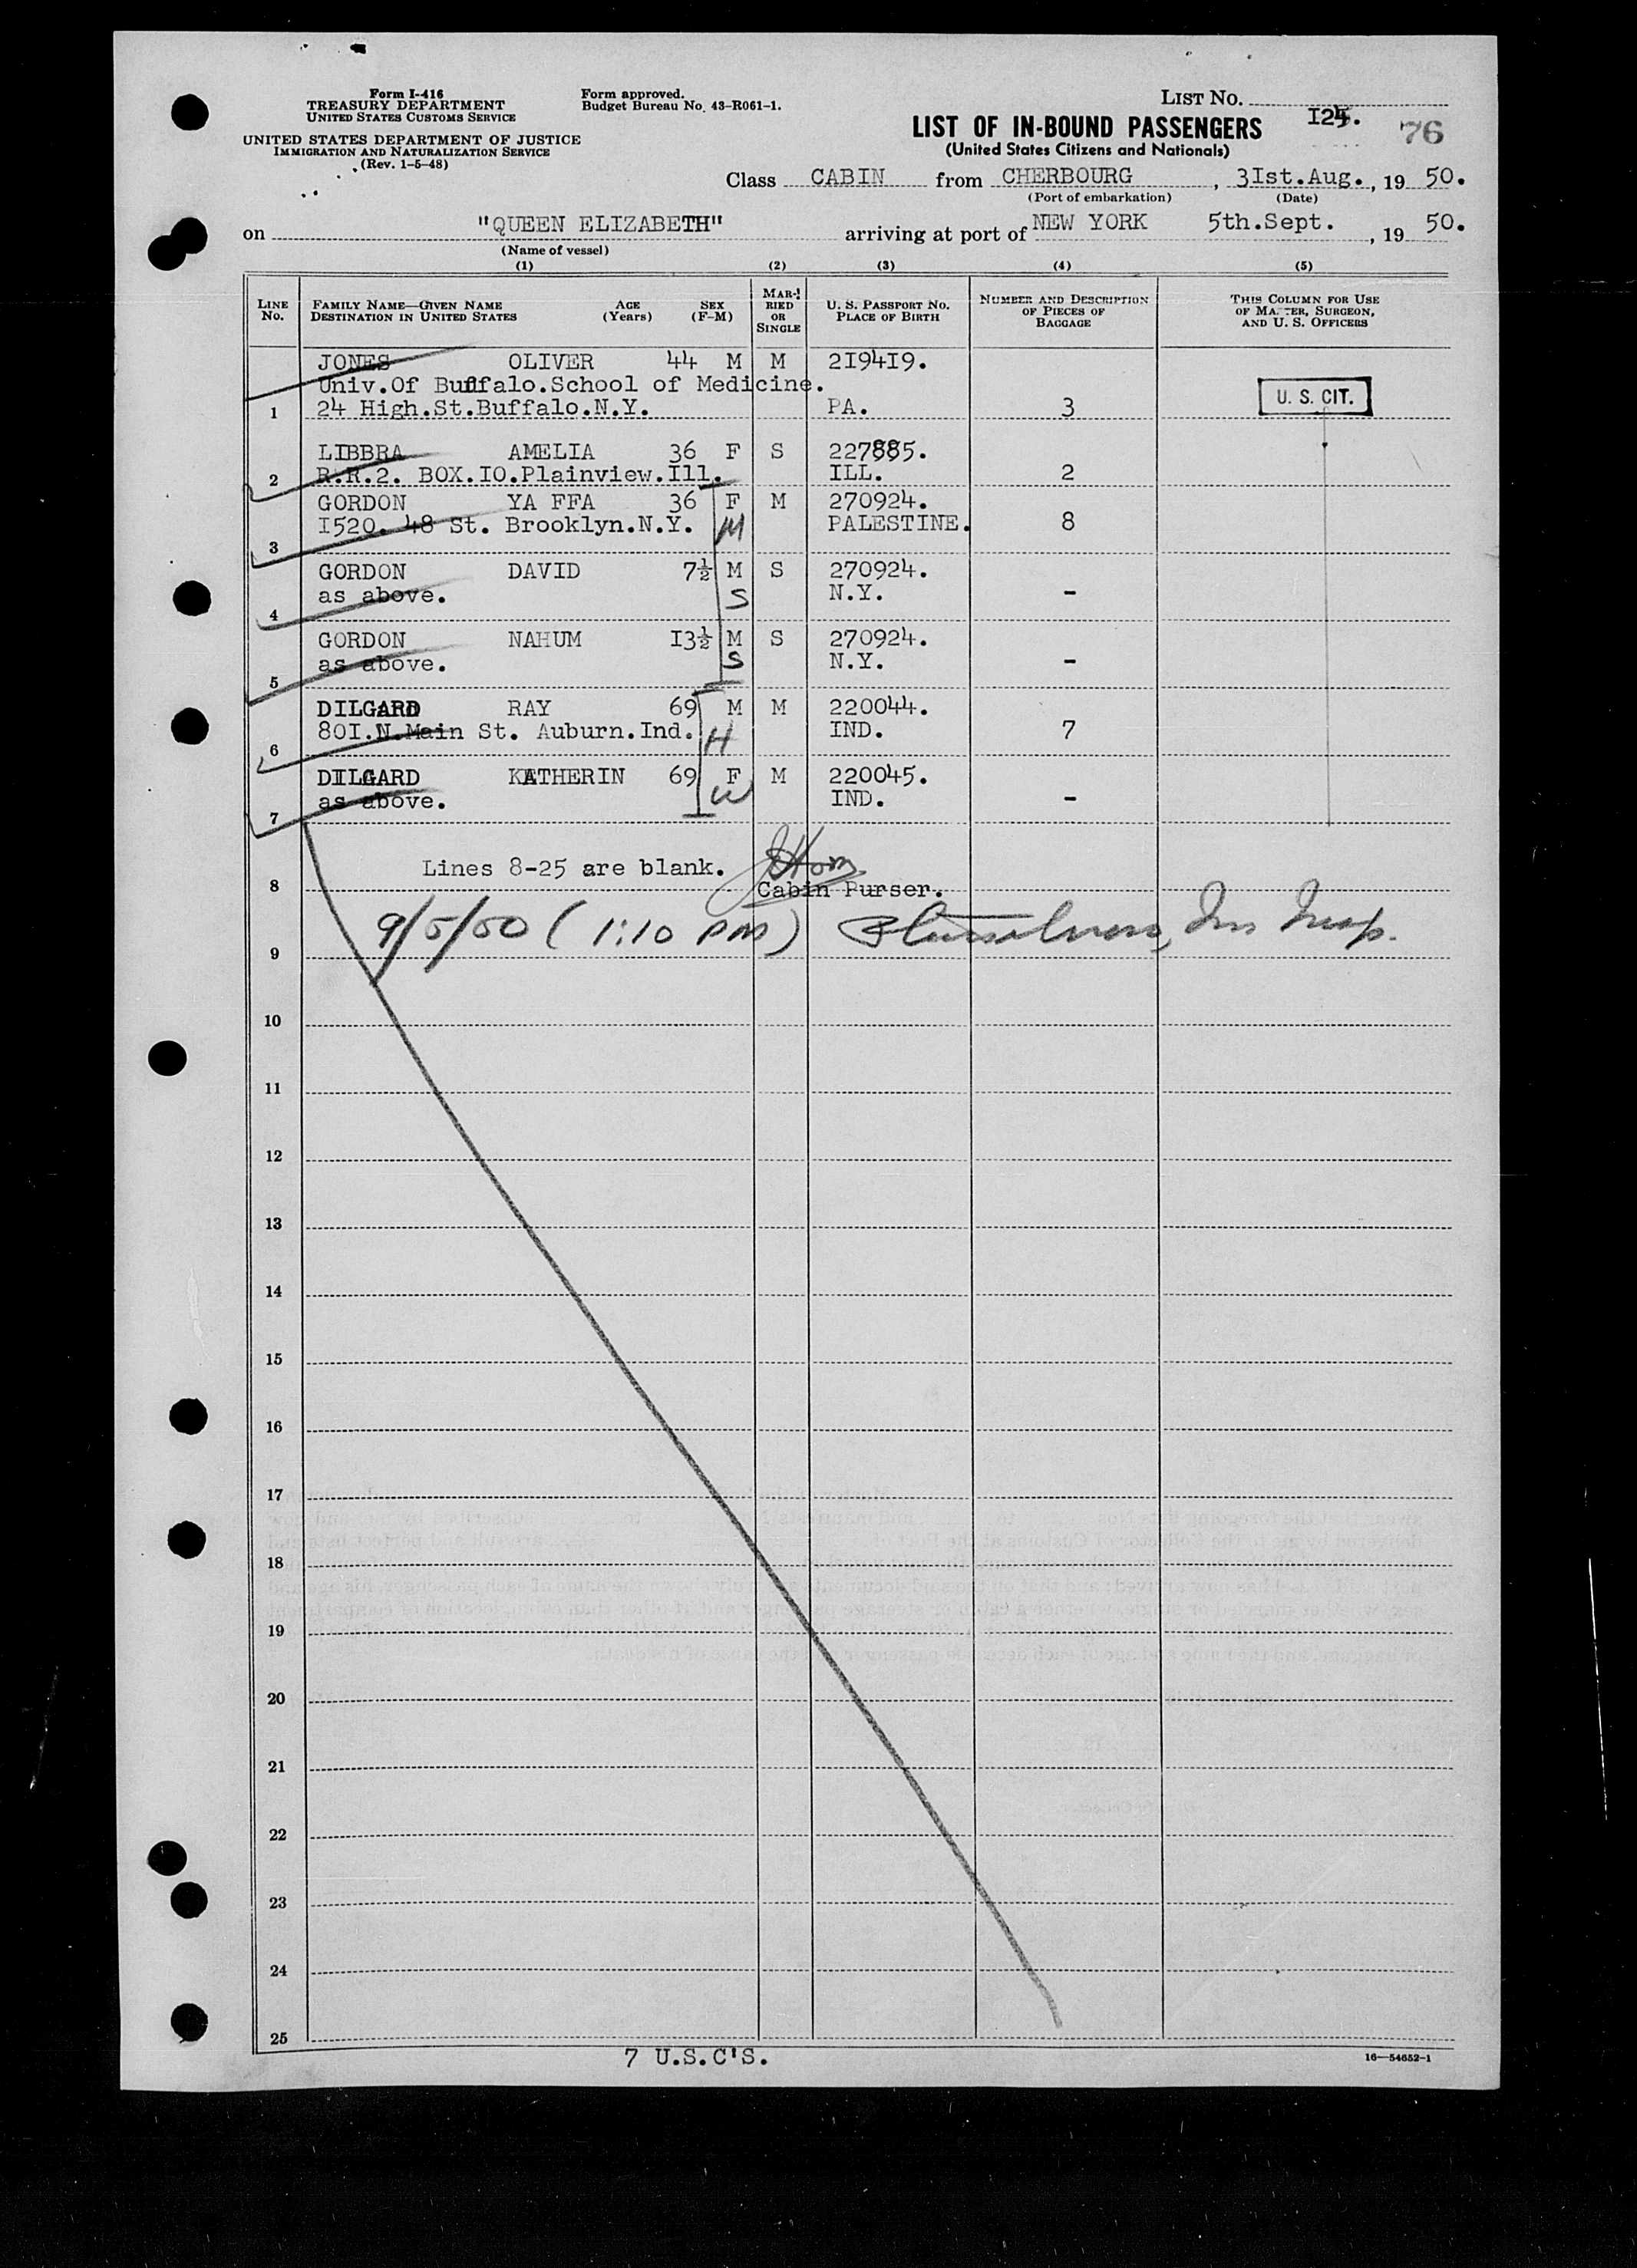 Form I-416
TREASURY DEPARTMENT
UNITED STATES CUSTOMS SERVICE
UNITED STATES DEPARTMENT OF JUSTICE
IMMIGRATION AND NATURALIZATION SERVICE
(Rev. 1-5-48)
Form approved.
Budget Bureau No. 43-R061-1.
LIST NO.
LIST OF IN-BOUND PASSENGERS
76
(United States Citizens and Nationals)
Class CABIN from CHERBOURG, 3Ist.Aug., 19 50.
(Port of embarkation) (Date)
on "QUEEN ELIZABETH" arriving at port of NEW YORK 5th.Sept., 19 50.
(Name of vessel)
(1) (2) (3) (4) (5)
LINE No. FAMILY NAME—GIVEN NAME DESTINATION IN UNITED STATES AGE (Years) SEX (F-M) MARRIED OR SINGLE U. S. PASSPORT NO. PLACE OF BIRTH NUMBER AND DESCRIPTION OF PIECES OF BAGGAGE THIS COLUMN FOR USE OF MASTER, SURGEON, AND U. S. OFFICERS
JONES OLIVER 44 M M 2I94I9.
Univ.Of Buffalo.School of Medicine.
1 24 High.St.Buffalo.N.Y. PA. 3 U. S. CIT.
LIBBRA AMELIA 36 F S 227885.
2 R.R.2. BOX.IO.Plainview.Ill. ILL. 2
GORDON YA FFA 36 F M 270924.
I520. 48 St. Brooklyn.N.Y. M PALESTINE. 8
3
GORDON DAVID 7½ M S 270924.
as above. S N.Y. -
4
GORDON NAHUM I3½ M S 270924.
as above. S N.Y. -
5
DILGARD RAY 69 M M 220044.
80I.N.Main St. Auburn.Ind. H IND. 7
6
DILGARD KATHERIN 69 F M 220045.
as above. W IND. -
7
Lines 8-25 are blank.
8 Cabin Purser.
9/5/50 (1:10 PM) Im Insp.
9
10
11
12
13
14
15
16
17
18
19
20
21
22
23
24
25
7 U.S.C'S.
16—54652-1